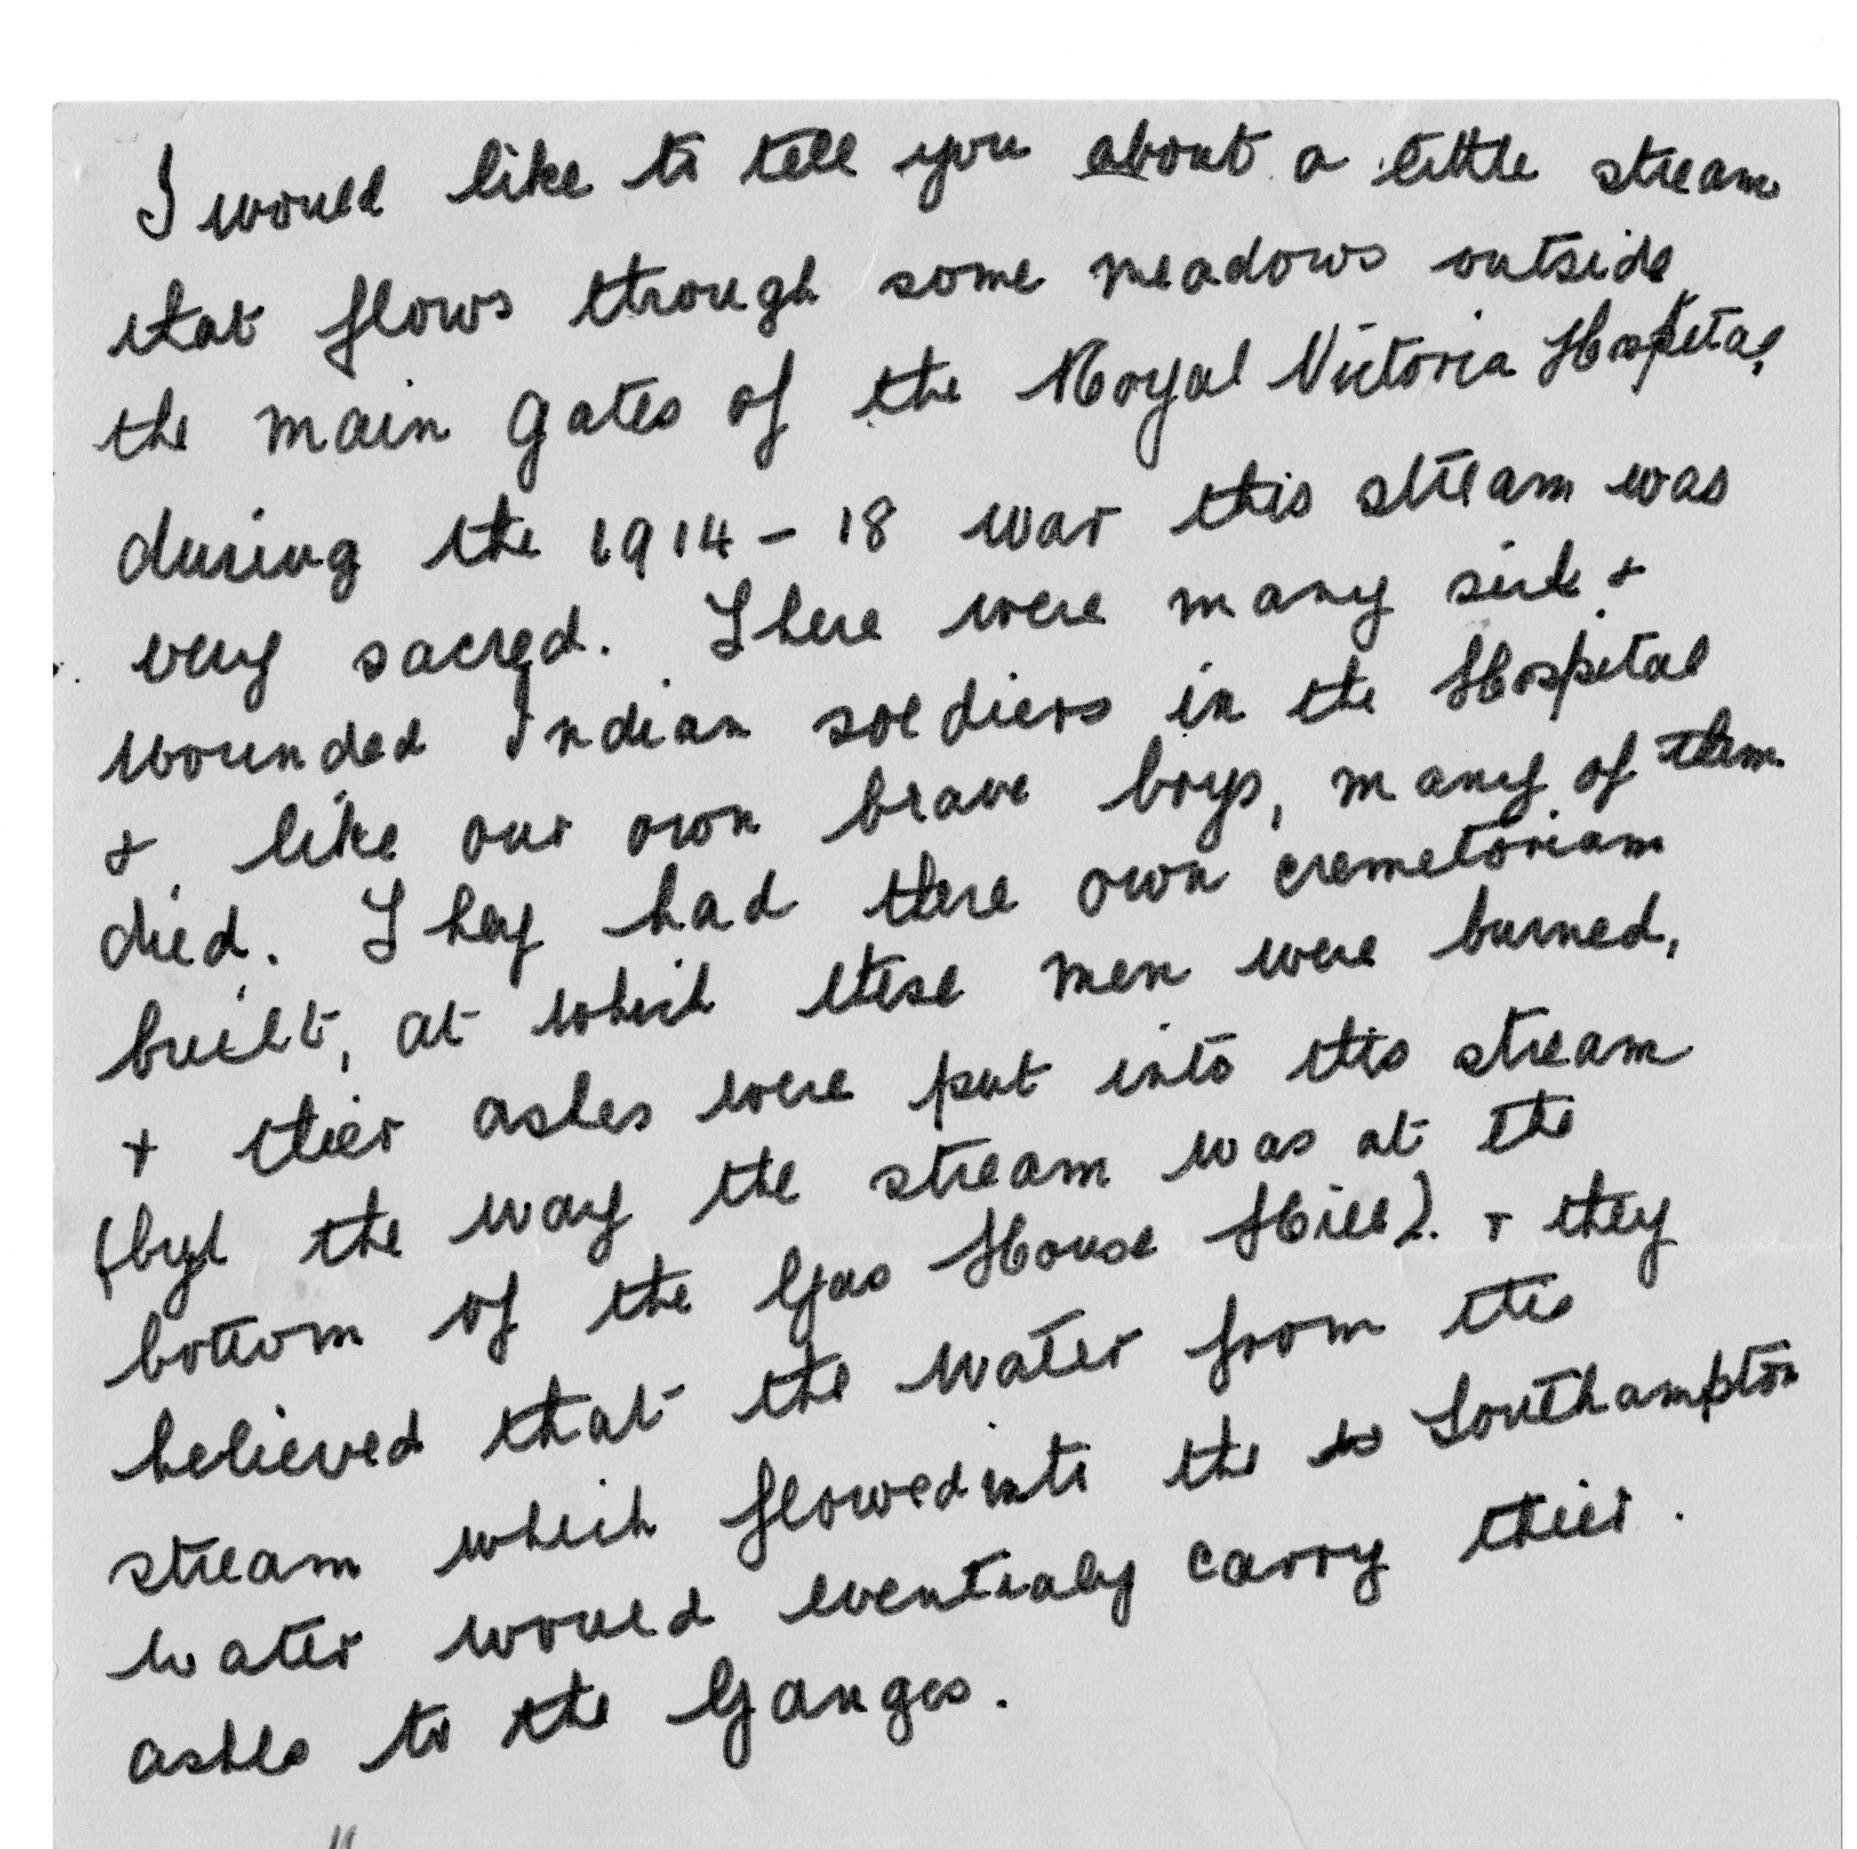 I would like to tell you about a little stream
that flows through some meadows outside
the main gates of the Royal Victoria Hospital,
during the 1914 - 18 war this stream was
very sacred. There were many sick +
wounded Indian soldiers in the Hospital
+ like our own brave boys, many of them
died. They had there own cremetoriam
built, at which these men were burned,
+ thier ashes were put into this stream
(by the way the stream was at the
bottom of the Gas House Hill). + they
believed that the water from the
stream which flowed into the Southampton
water would eventialy carry thier
ashes to the Ganges.